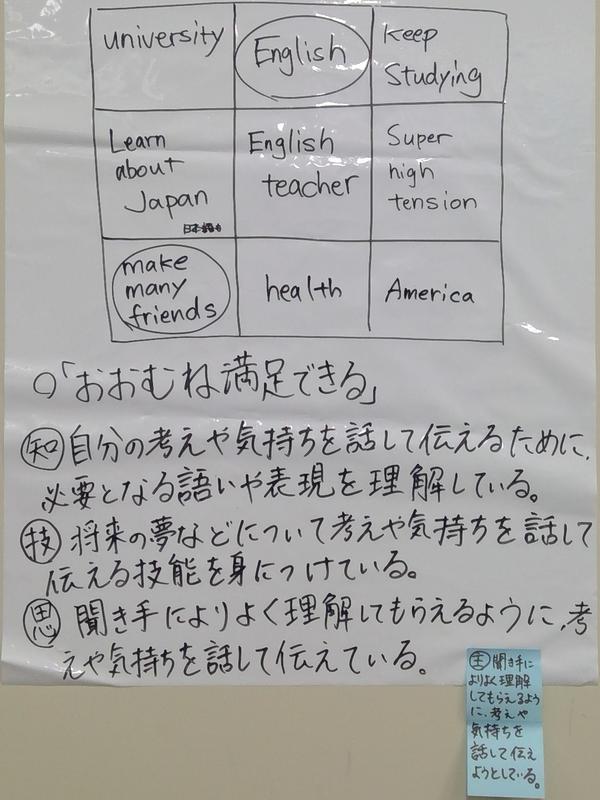 university
English
keep
Studying
Learn
about
Japan
日本語も
English
teacher
Super
high
tension
make
many
friends
health
America
○「おおむね満足できる」
知 自分の考えや気持ちを話して伝えるために、
必要となる語いや表現を理解している。
技 将来の夢などについて考えや気持ちを話して
伝える技能を身につけている。
思 聞き手によりよく理解してもらえるように、考
えや気持ちを話して伝えている。
主 聞き手に
よりよく理解
してもらえるよう
に、考えや
気持ちを
話して伝え
ようとしている。